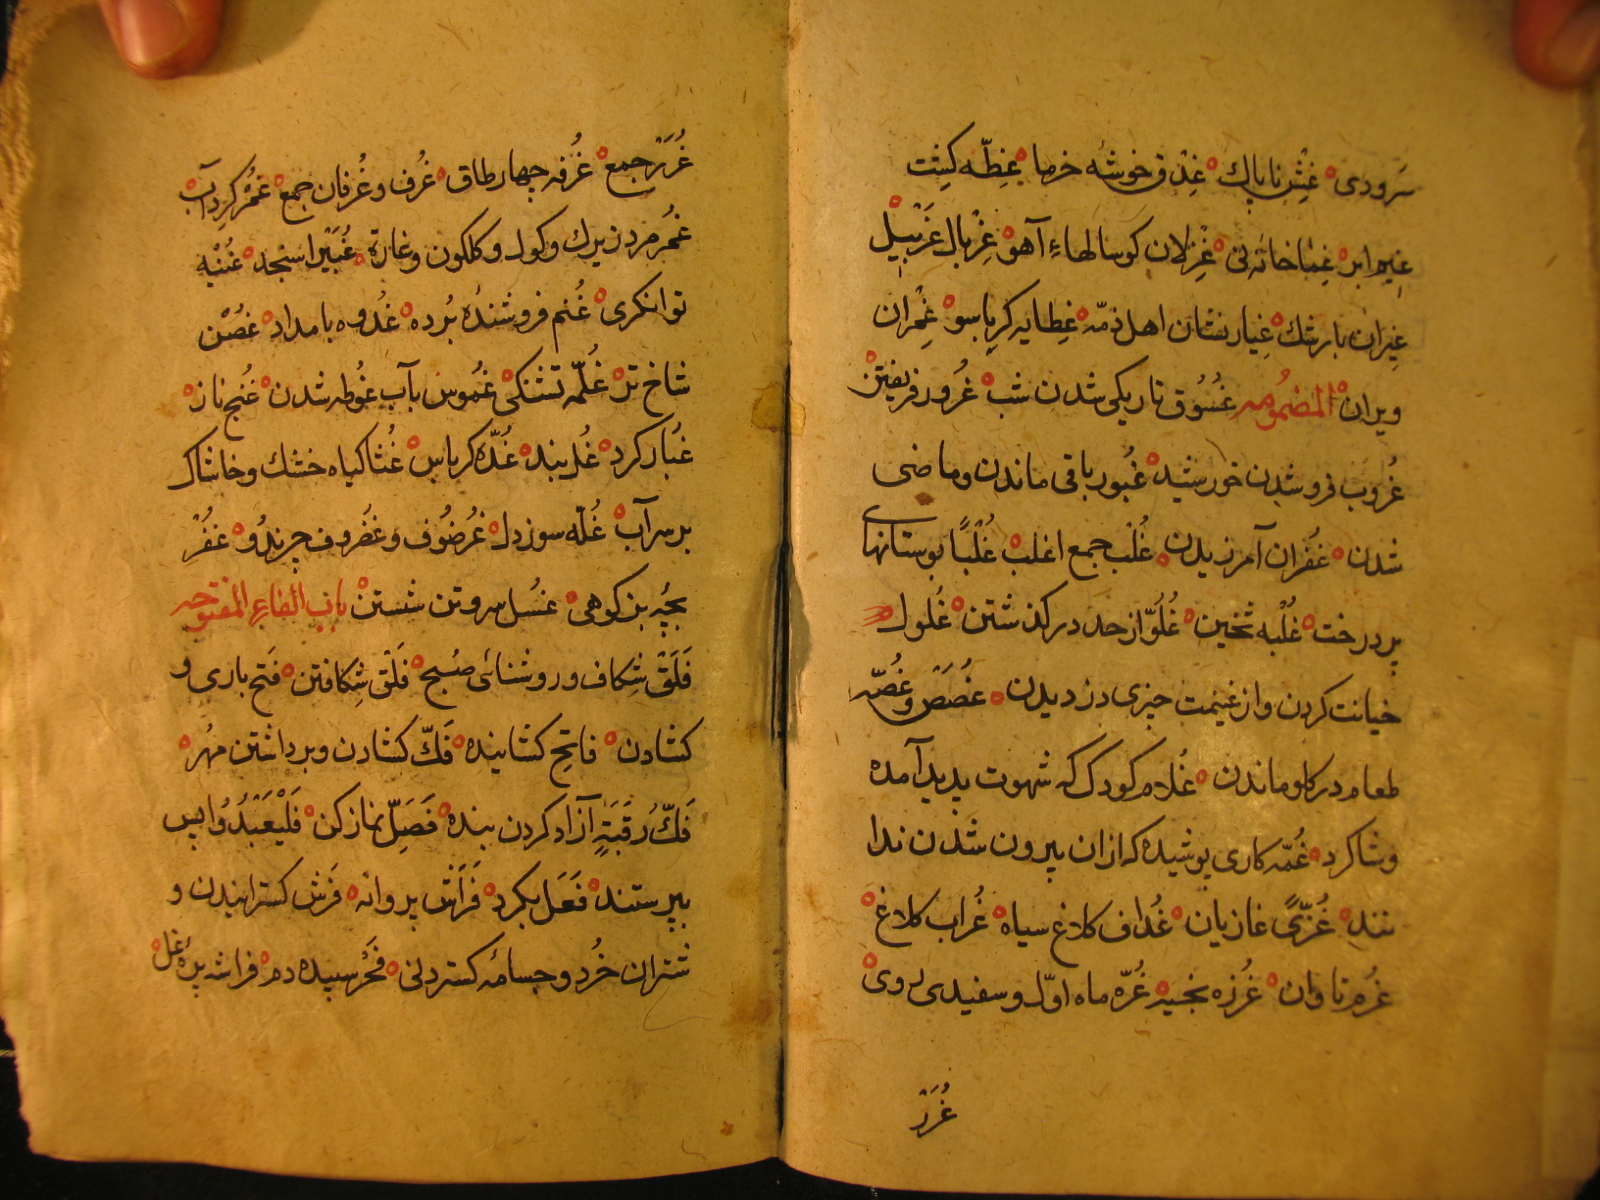 سرودی غِشّ ناپاك غِذق خوشه خرما غِطّه كشت
غیم ابر غِنا خانه نی غِزلان كوسالهاء آهو غِربال غَربیل
غیران بارشك غِیار نشان اهل ذمّه غِطایه كرباسو غِمران
ویران المضمومه غُسُوق تاریكی شدن شب غُرور فریفتن
غُروب فرو شدن خورشید غُبور باقی ماندن وماضی
شدن غُفران آمرزیدن غُلب جمع اغلب غُلْبًا بوستانهای
پر درخت غُلْبه ثخین غُلُوّ از حد در كذشتن غُلول
خیانت كردن واز غنیمت چیزی دزدیدن غُصَص وغُصّه
طعام در كلو ماندن غُلام كودك كه شهوت پدید آمده
وشاكرد غُمّه كاری پوشیده كه ازان بیرون شدن ندا
نند غُزّیً غازیان غُداف كلاغ سیاه غُراب كلاغ
غُرم تاوان غُرزه بخیه غُرّه ماه اوّل وسفیدی روی
غُرَر
غُرَر جمع غُرفه چهار طاق غُرف وغُرفان جمع غَمْر كرداب
غُمر مرد زیرك وكول وكلكون وغازة غُبَیْرا سنجد غُنْیه
توانكری غُنم فروشندٔه بُرده غُدوه بامداد غُصْن
شاخ تر غُلّمه تشنكی غُموس بآب غوطه شدن غُنج ناز
غُبار كرد غُل بند غُدّه كرباس غُثا كیاه خشك وخاشاك
بر سر آب غُلّه سوز دل غُرضُوف وغُضروف چرندو غُفْر
بچه بز كوهی غُسْل سر وتن شستن باب الفاء المفتوحه
فَلَق شكاف وروشنائی صُبح فَلْق شكافتن فَتح یاری و
كشادن فاتِح كشاینده فَكّ كشادن وبرداشتن مهر
فَكُّ رَقَبَةٍ آزاد كردن بنده فَصَلِّ نماز كن فَلْیَعْبُدُوا پس
بپرستند فَعَل بكرد فَراش پروانه فَرش كسترانیدن و
شتران خُرد وجامه كستردنی فَجْر سپیده دم فراشه پره غل